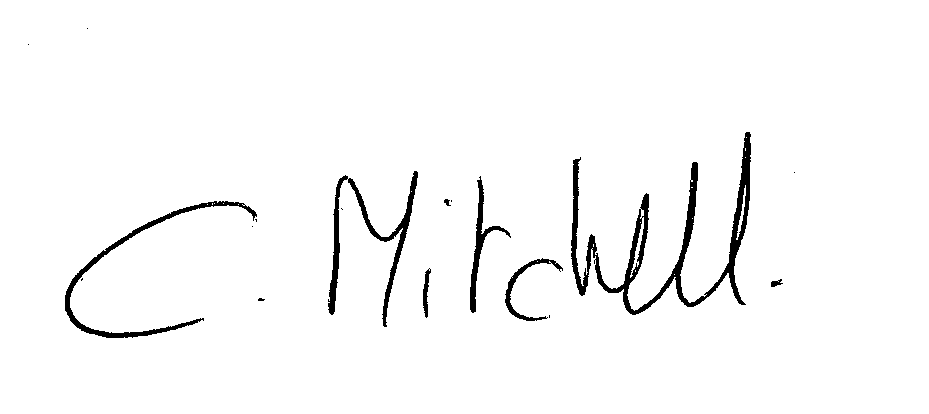 C. Mitchell.